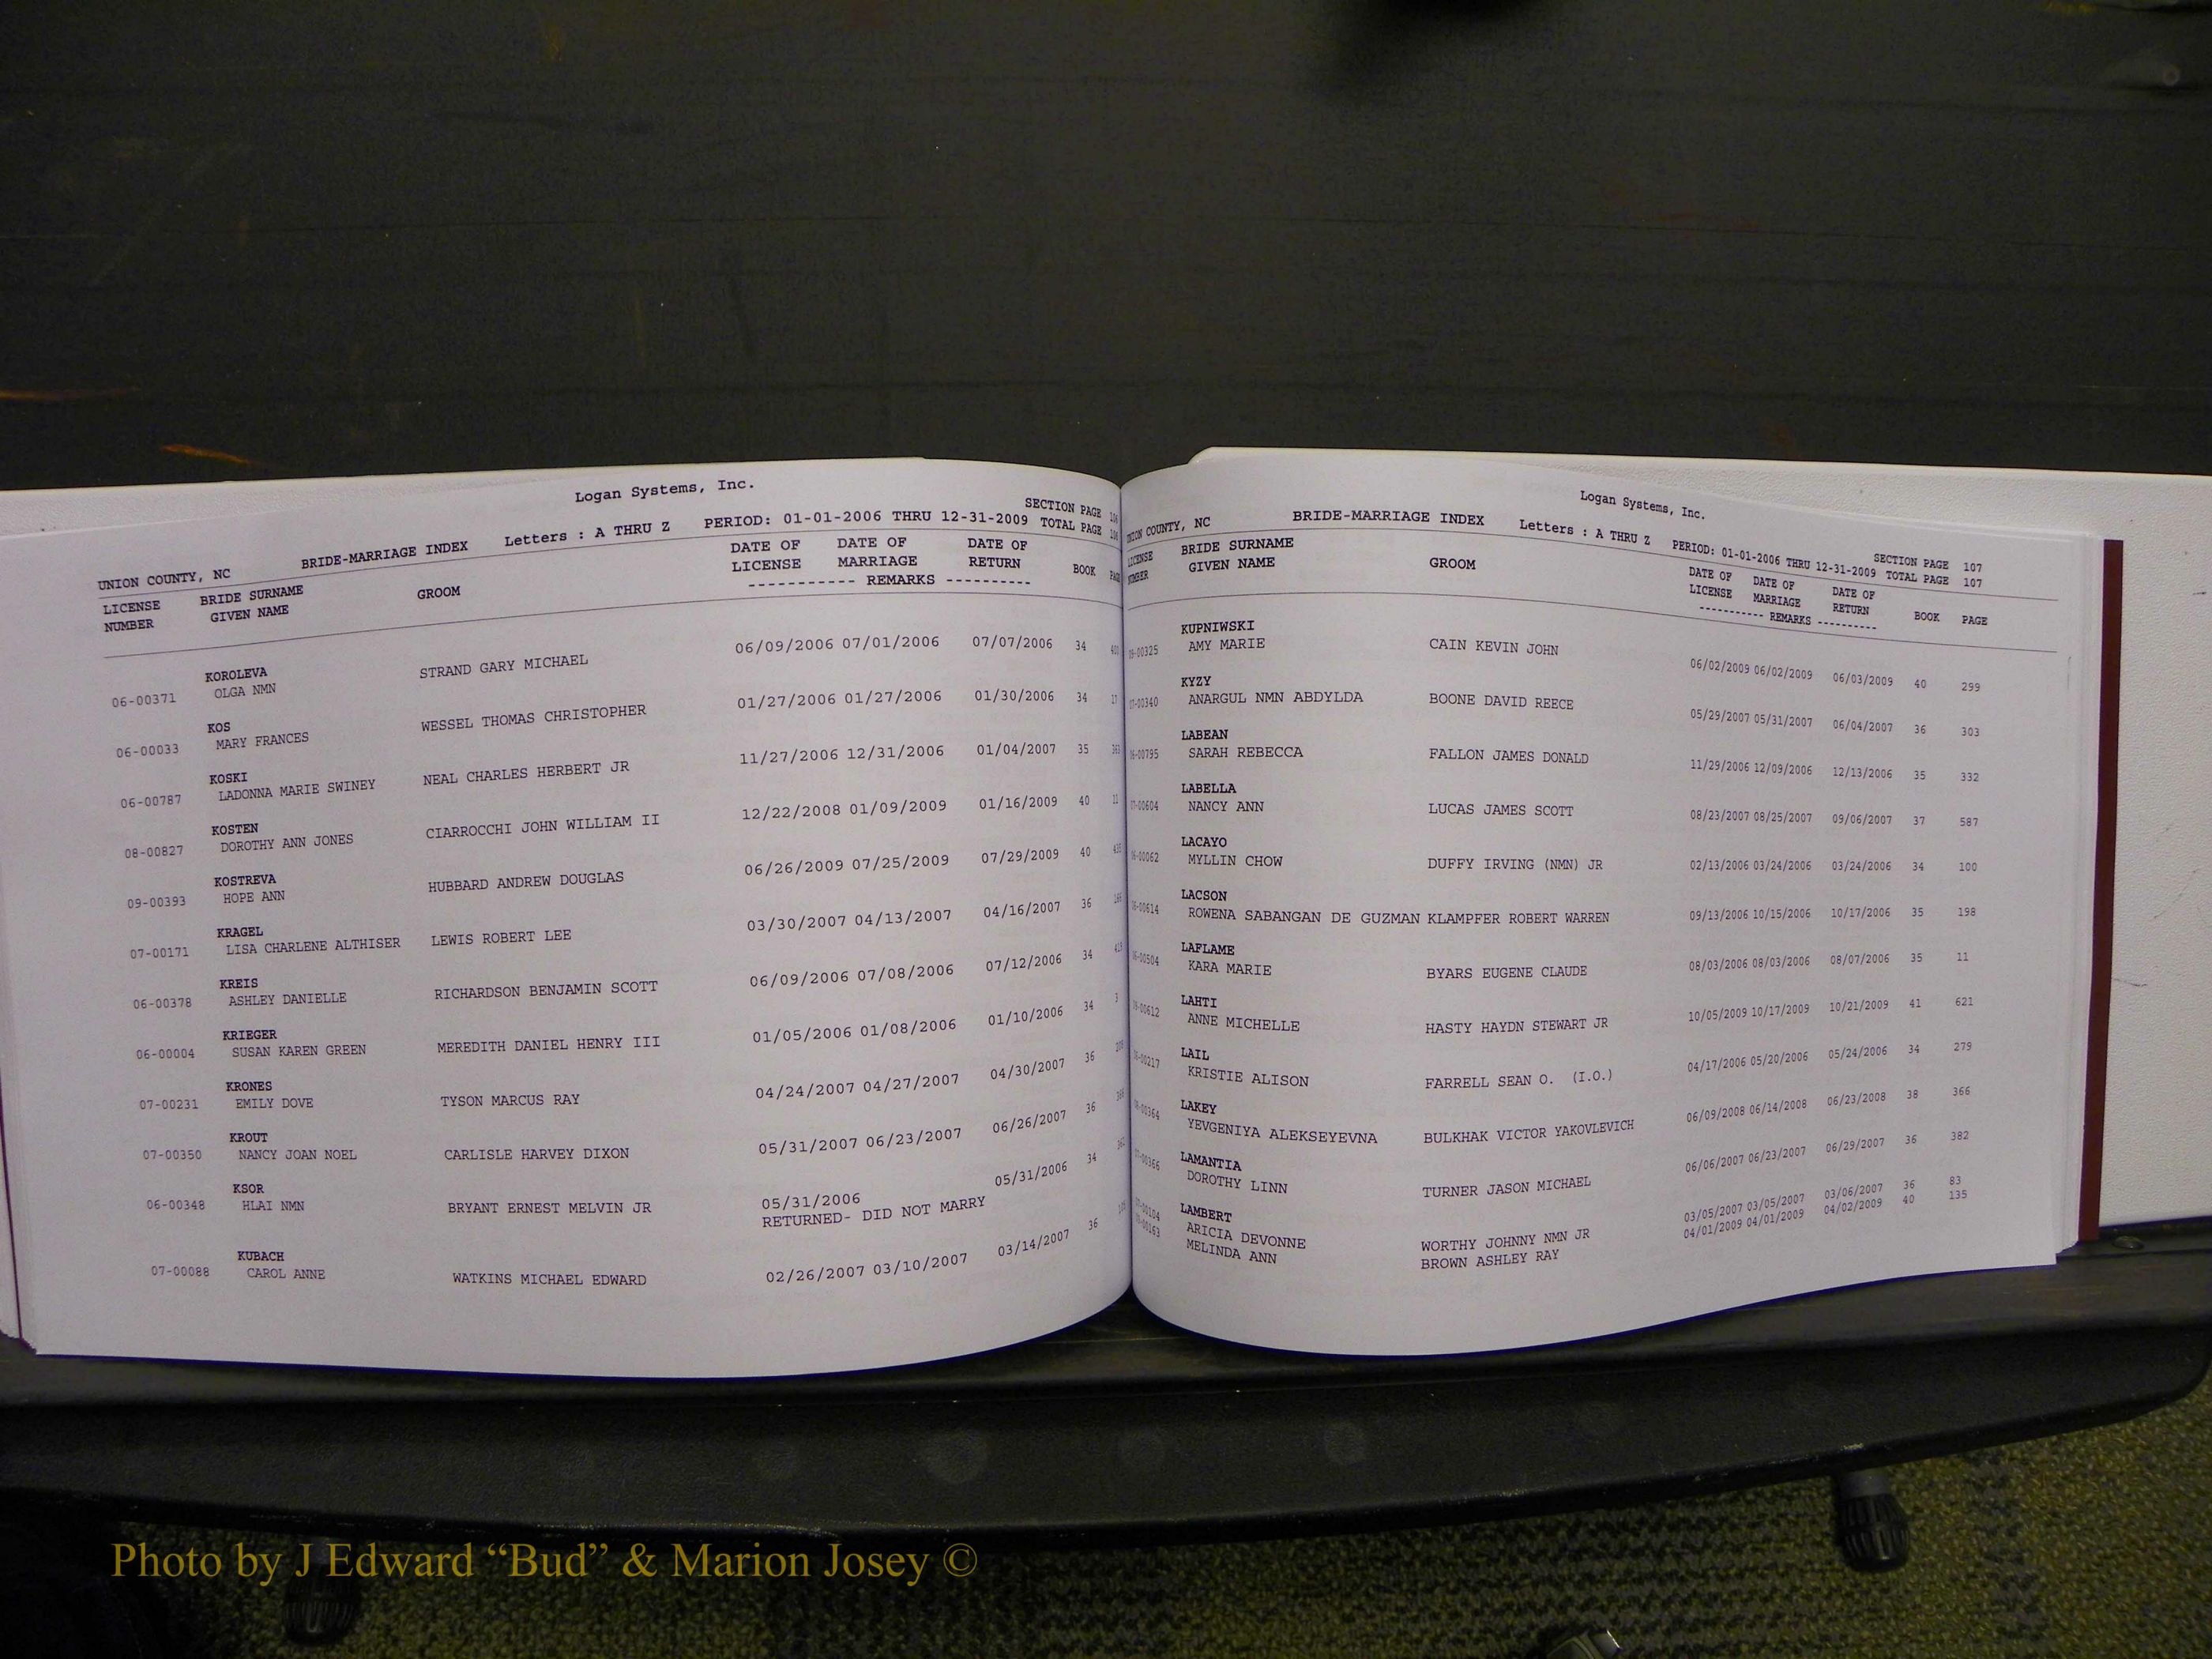 Logan Systems, Inc.
SECTION PAGE 106
UNION COUNTY, NC BRIDE-MARRIAGE INDEX Letters : A THRU Z PERIOD: 01-01-2006 THRU 12-31-2009 TOTAL PAGE 106
LICENSE BRIDE SURNAME GROOM DATE OF DATE OF DATE OF BOOK PAGE
NUMBER GIVEN NAME LICENSE MARRIAGE RETURN
----------- REMARKS ----------
KOROLEVA
06-00371 OLGA NMN STRAND GARY MICHAEL 06/09/2006 07/01/2006 07/07/2006 34
KOS
06-00033 MARY FRANCES WESSEL THOMAS CHRISTOPHER 01/27/2006 01/27/2006 01/30/2006 34
KOSKI
06-00787 LADONNA MARIE SWINEY NEAL CHARLES HERBERT JR 11/27/2006 12/31/2006 01/04/2007 35
KOSTEN
08-00827 DOROTHY ANN JONES CIARROCCHI JOHN WILLIAM II 12/22/2008 01/09/2009 01/16/2009 40
KOSTREVA
09-00393 HOPE ANN HUBBARD ANDREW DOUGLAS 06/26/2009 07/25/2009 07/29/2009 40
KRAGEL
07-00171 LISA CHARLENE ALTHISER LEWIS ROBERT LEE 03/30/2007 04/13/2007 04/16/2007 36
KREIS
06-00378 ASHLEY DANIELLE RICHARDSON BENJAMIN SCOTT 06/09/2006 07/08/2006 07/12/2006 34
KRIEGER
06-00004 SUSAN KAREN GREEN MEREDITH DANIEL HENRY III 01/05/2006 01/08/2006 01/10/2006 34
KRONES
07-00231 EMILY DOVE TYSON MARCUS RAY 04/24/2007 04/27/2007 04/30/2007 36
KROUT
07-00350 NANCY JOAN NOEL CARLISLE HARVEY DIXON 05/31/2007 06/23/2007 06/26/2007 36
KSOR
06-00348 HLAI NMN BRYANT ERNEST MELVIN JR 05/31/2006 05/31/2006 34
RETURNED- DID NOT MARRY
KUBACH
07-00088 CAROL ANNE WATKINS MICHAEL EDWARD 02/26/2007 03/10/2007 03/14/2007 36
Logan Systems, Inc.
SECTION PAGE 107
UNION COUNTY, NC BRIDE-MARRIAGE INDEX Letters : A THRU Z PERIOD: 01-01-2006 THRU 12-31-2009 TOTAL PAGE 107
LICENSE BRIDE SURNAME GROOM DATE OF DATE OF DATE OF BOOK PAGE
NUMBER GIVEN NAME LICENSE MARRIAGE RETURN
----------- REMARKS ----------
KUPNIWSKI
09-00325 AMY MARIE CAIN KEVIN JOHN 06/02/2009 06/02/2009 06/03/2009 40 299
KYZY
07-00340 ANARGUL NMN ABDYLDA BOONE DAVID REECE 05/29/2007 05/31/2007 06/04/2007 36 303
LABEAN
06-00795 SARAH REBECCA FALLON JAMES DONALD 11/29/2006 12/09/2006 12/13/2006 35 332
LABELLA
07-00604 NANCY ANN LUCAS JAMES SCOTT 08/23/2007 08/25/2007 09/06/2007 37 587
LACAYO
06-00062 MYLLIN CHOW DUFFY IRVING (NMN) JR 02/13/2006 03/24/2006 03/24/2006 34 100
LACSON
06-00614 ROWENA SABANGAN DE GUZMAN KLAMPFER ROBERT WARREN 09/13/2006 10/15/2006 10/17/2006 35 198
LAFLAME
06-00504 KARA MARIE BYARS EUGENE CLAUDE 08/03/2006 08/03/2006 08/07/2006 35 11
LAHTI
09-00612 ANNE MICHELLE HASTY HAYDN STEWART JR 10/05/2009 10/17/2009 10/21/2009 41 621
LAIL
06-00217 KRISTIE ALISON FARRELL SEAN O. (I.O.) 04/17/2006 05/20/2006 05/24/2006 34 279
LAKEY
08-00364 YEVGENIYA ALEKSEYEVNA BULKHAK VICTOR YAKOVLEVICH 06/09/2008 06/14/2008 06/23/2008 38 366
LAMANTIA
07-00366 DOROTHY LINN TURNER JASON MICHAEL 06/06/2007 06/23/2007 06/29/2007 36 382
LAMBERT
07-00104 ARICIA DEVONNE WORTHY JOHNNY NMN JR 03/05/2007 03/05/2007 03/06/2007 36 83
09-00163 MELINDA ANN BROWN ASHLEY RAY 04/01/2009 04/01/2009 04/02/2009 40 135
Photo by J Edward “Bud” & Marion Josey ©